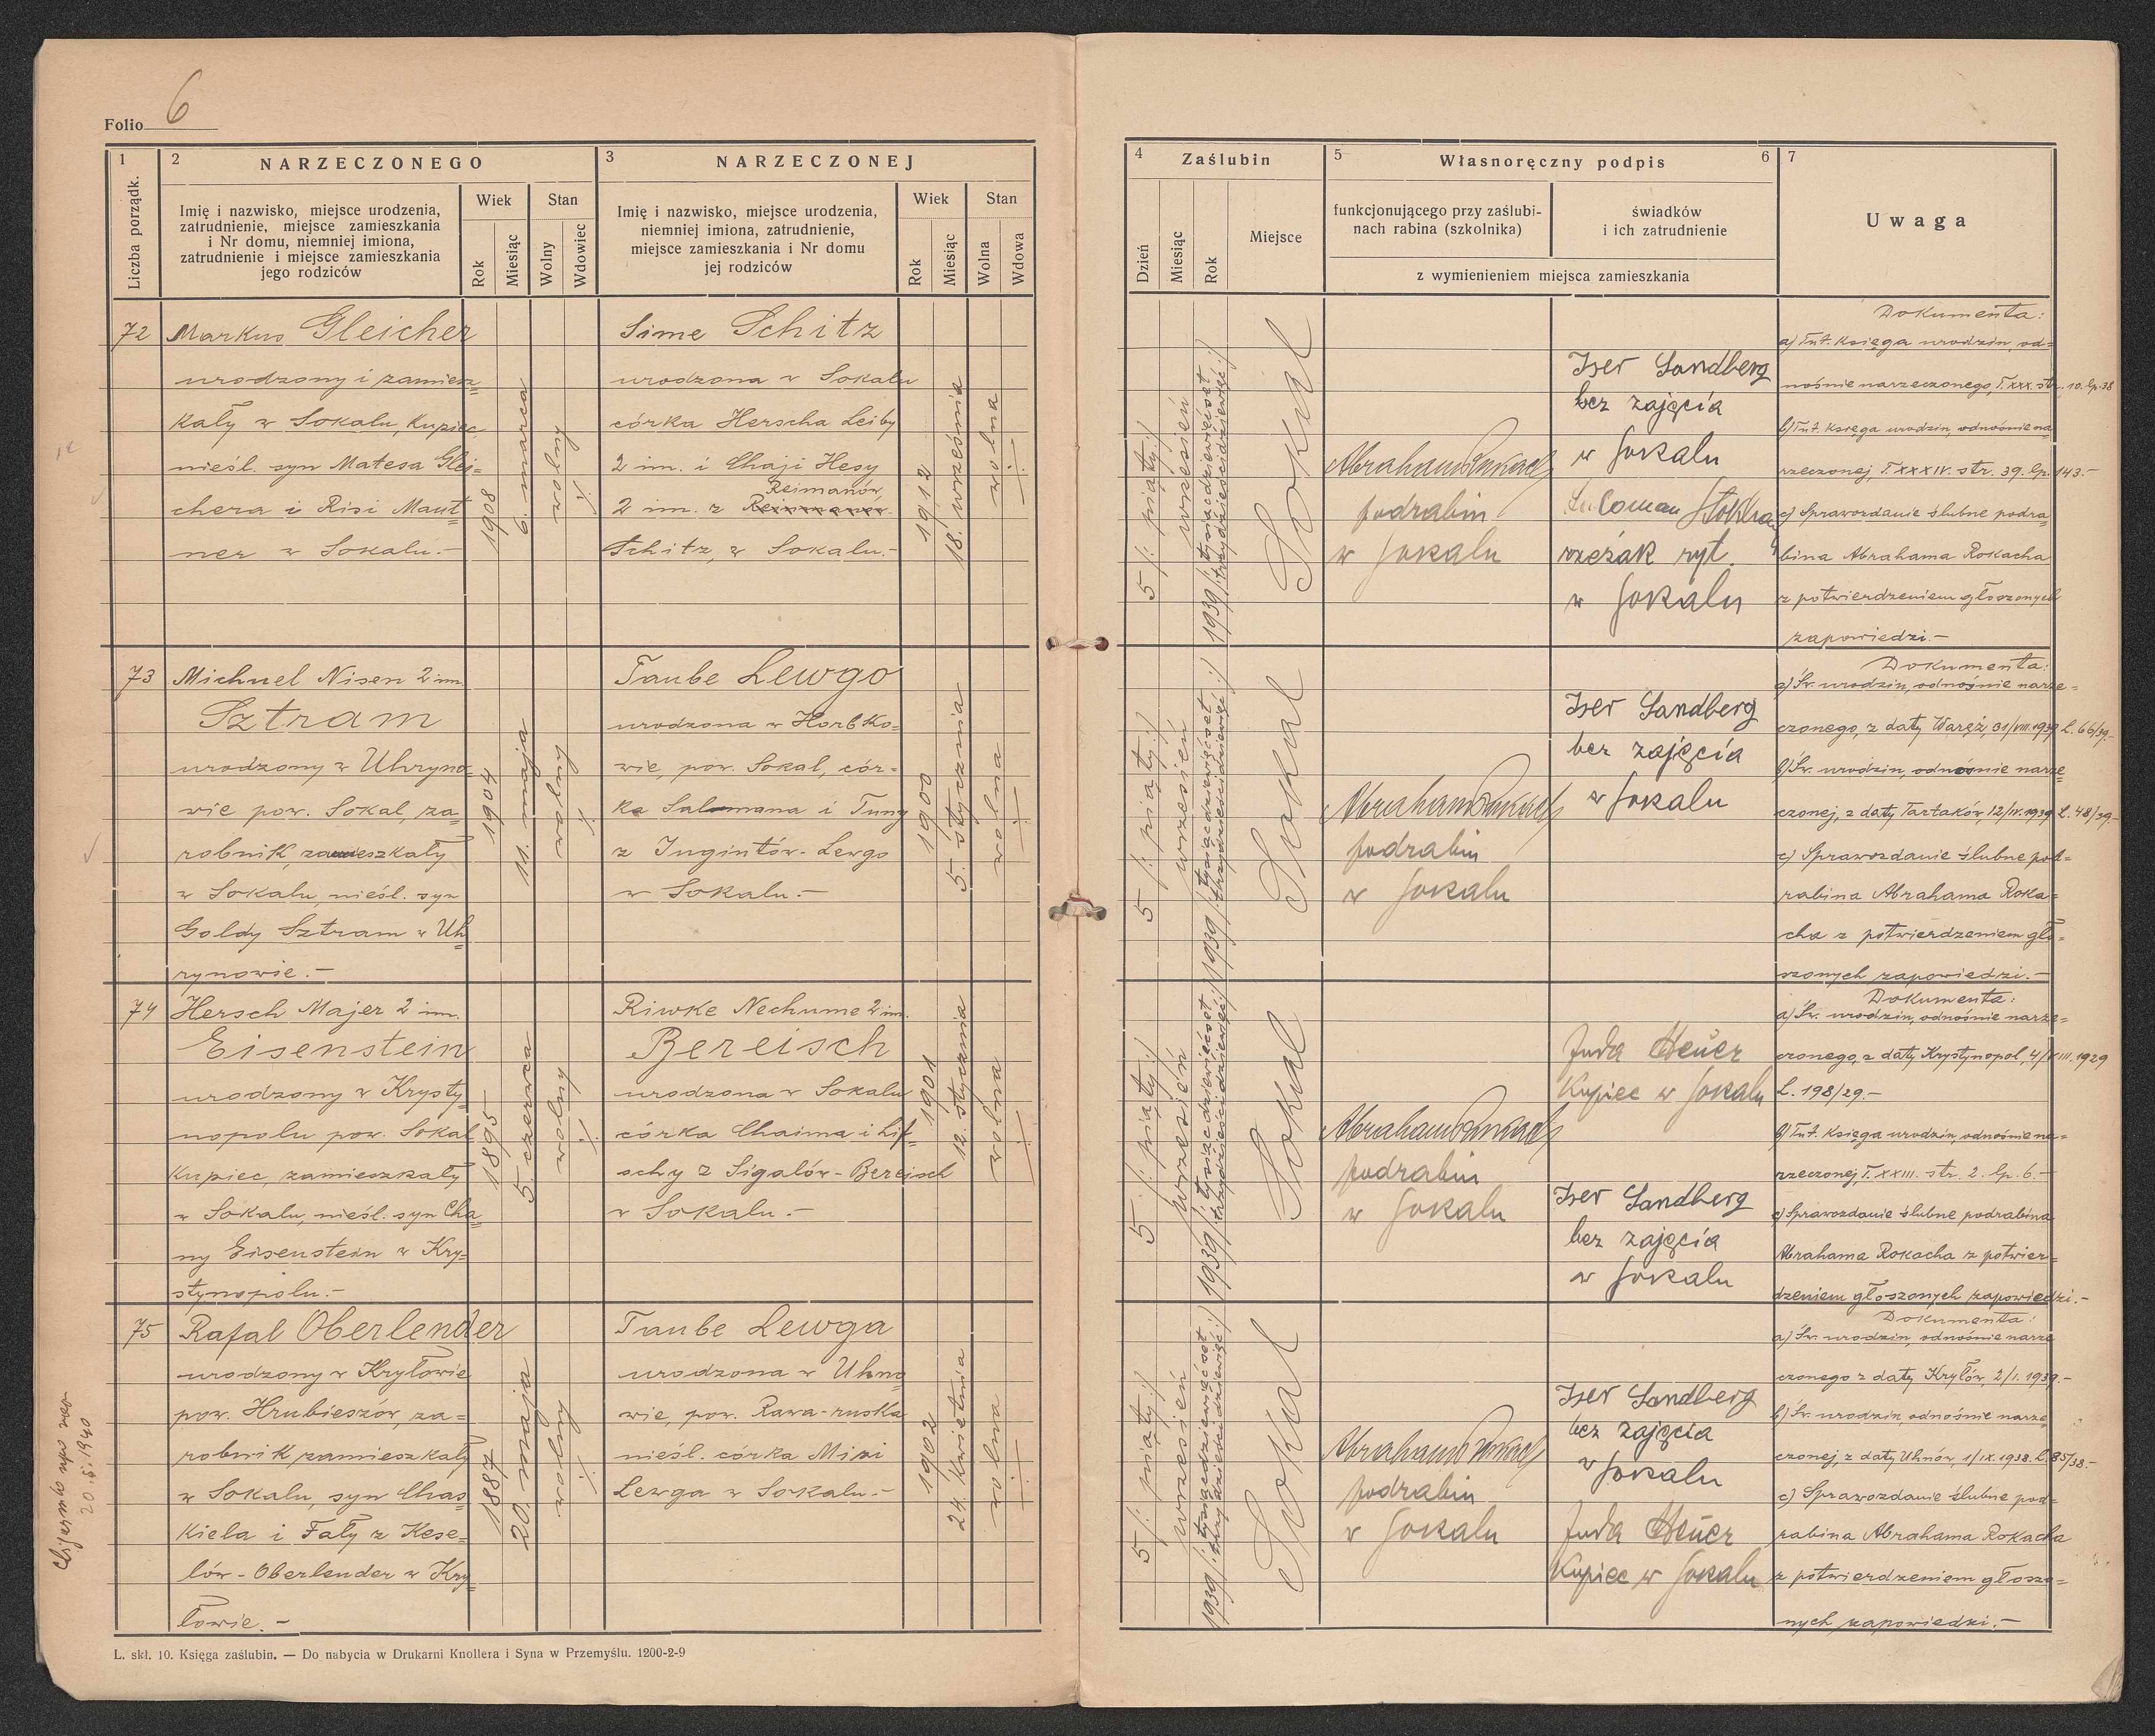 Folio 6
1
Liczba porządk.
2
NARZECZONEGO
Imię i nazwisko, miejsce urodzenia,
zatrudnienie, miejsce zamieszkania
i Nr domu, niemniej imiona,
zatrudnienie i miejsce zamieszkania
jego rodziców
Wiek
Rok
Miesiąc
Stan
Wolny
Wdowiec
3
NARZECZONEJ
Imię i nazwisko, miejsce urodzenia,
niemniej imiona, zatrudnienie,
miejsce zamieszkania i Nr domu
jej rodziców
Wiek
Rok
Miesiąc
Stan
Wolna
Wdowa
4
Zaślubin
Dzień
Miesiąc
Rok
Miejsce
5
Własnoręczny podpis
6
funkcjonującego przy zaślubi-
nach rabina (szkolnika)
świadków
i ich zatrudnienie
z wymienieniem miejsca zamieszkania
7
Uwaga
72
Markus Gleicher
urodzony i zamiesz=
kały w Sokalu, Kupiec
nieśl. syn Matesa Glei=
chera i Risi Maut=
ner w Sokalu.-
1908
6. marca
wolny
Sime Schitz
urodzona w Sokalu
córka Herscha Leiby
2 im. i Chaji Hesy
Reimanów
2 im. z
Schitz, w Sokalu.-
1912
18. września
wolna
5 /: piąty:/
wrzesień
1939 /: tysiącdziewięćset
trzydzieścidziewięć:/
Sokal
Abraham Rokach
podrabin
w Sokalu
Iser Sandberg
bez zajęcia
w Sokalu
rzeźak ryt.
w Sokalu
Dokumenta:
a) Tut. Księga urodzin, od=
nośnie narzeczonego, T. XXX. str. 10. lp. 38
b) Tut. Księga urodzin, odnośnie na=
rzeczonej, T. XXXIV. str. 39. lp. 143.-
c) Sprawozdanie ślubne podra=
bina Abrahama Rokacha
z potwierdzeniem głoszonych
zapowiedzi.-
73
Michuel Nisen 2 im.
Sztram
urodzony w Uhryno=
wie pow. Sokal, za=
robnik, zamieszkały
w Sokalu, nieśl. syn
Goldy Sztram w Uh=
rynowie.-
1904
11. maja
wolny
Taube Lewgo
urodzona w Horbko=
wie, pow. Sokal, cór=
ka Salomona i Tuny
z Jugintów-Lewgo
w Sokalu.-
1900
5. stycznia
wolna
5 /: piąty:/
wrzesień
1939 /: tysiącdziewięćset
trzydzieścidziewięć:/
Sokal
Abraham Rokach
podrabin
w Sokalu
Iser Sandberg
bez zajęcia
w Sokalu
Dokumenta:
a) Św. urodzin, odnośnie narze=
czonego, z daty Waręż, 31/VIII.1939 L. 66/39.-
b) Św. urodzin, odnośnie narze=
czonej, z daty Tartaków, 12/IV.1939 L. 48/39.-
c) Sprawozdanie ślubne pod=
rabina Abrahama Roka=
cha z potwierdzeniem gło=
szonych zapowiedzi.-
74
Hersch Majer 2 im.
Eisenstein
urodzony w Krysty=
nopolu pow. Sokal
Kupiec, zamieszkały
w Sokalu, nieśl. syn Cha=
ny Eisenstein w Kry=
stynopolu.-
1895
5. czerwca
wolny
Riwke Nechume 2 im.
Bereisch
urodzona w Sokalu
córka Chaima i Lif=
schy z Sigalów-Bereisch
w Sokalu.-
1901
12. stycznia
wolna
5 /: piąty:/
wrzesień
1939 /: tysiącdziewięćset
trzydzieścidziewięć:/
Sokal
Abraham Rokach
podrabin
w Sokalu
Juda Heuer
Kupiec w Sokalu
Iser Sandberg
bez zajęcia
w Sokalu
Dokumenta:
a) Św. urodzin, odnośnie narze=
czonego, z daty Krystynopol, 4/VIII.1929
L. 198/29.-
b) Tut. Księga urodzin, odnośnie na=
rzeczonej, T. XXIII. str. 2. lp. 6.-
c) Sprawozdanie ślubne podrabina
Abrahama Rokacha z potwier=
dzeniem głoszonych zapowiedzi.-
75
Rafal Oberlender
urodzony w Kryłowie
pow. Hrubieszów, za=
robnik zamieszkały
w Sokalu, syn Chas=
kiela i Fały z Kese=
lów-Oberlender w Kry=
łowie.-
1887
20. maja
wolny
Taube Lewga
urodzona w Uhno=
wie, pow. Rawa-ruska
nieśl. córka Mizi
Lewga w Sokalu.-
1902
24. kwietnia
wolna
5 /: piąty:/
wrzesień
1939 /: tysiącdziewięćset
trzydzieścidziewięć:/
Sokal
Abraham Rokach
podrabin
w Sokalu
Iser Sandberg
bez zajęcia
w Sokalu
Juda Heuer
Kupiec w Sokalu
Dokumenta:
a) Św. urodzin, odnośnie narze
czonego z daty Kryłów, 2/I.1939.-
b) Św. urodzin, odnośnie narze
czonej, z daty Uhnów, 1/IX.1938. L. 85/38.-
c) Sprawozdanie ślubne pod=
rabina Abrahama Rokacha
z potwierdzeniem głoszo=
nych zapowiedzi.-
20.5.1940
L. skł. 10. Księga zaślubin. — Do nabycia w Drukarni Knollera i Syna w Przemyślu. 1200-2-9